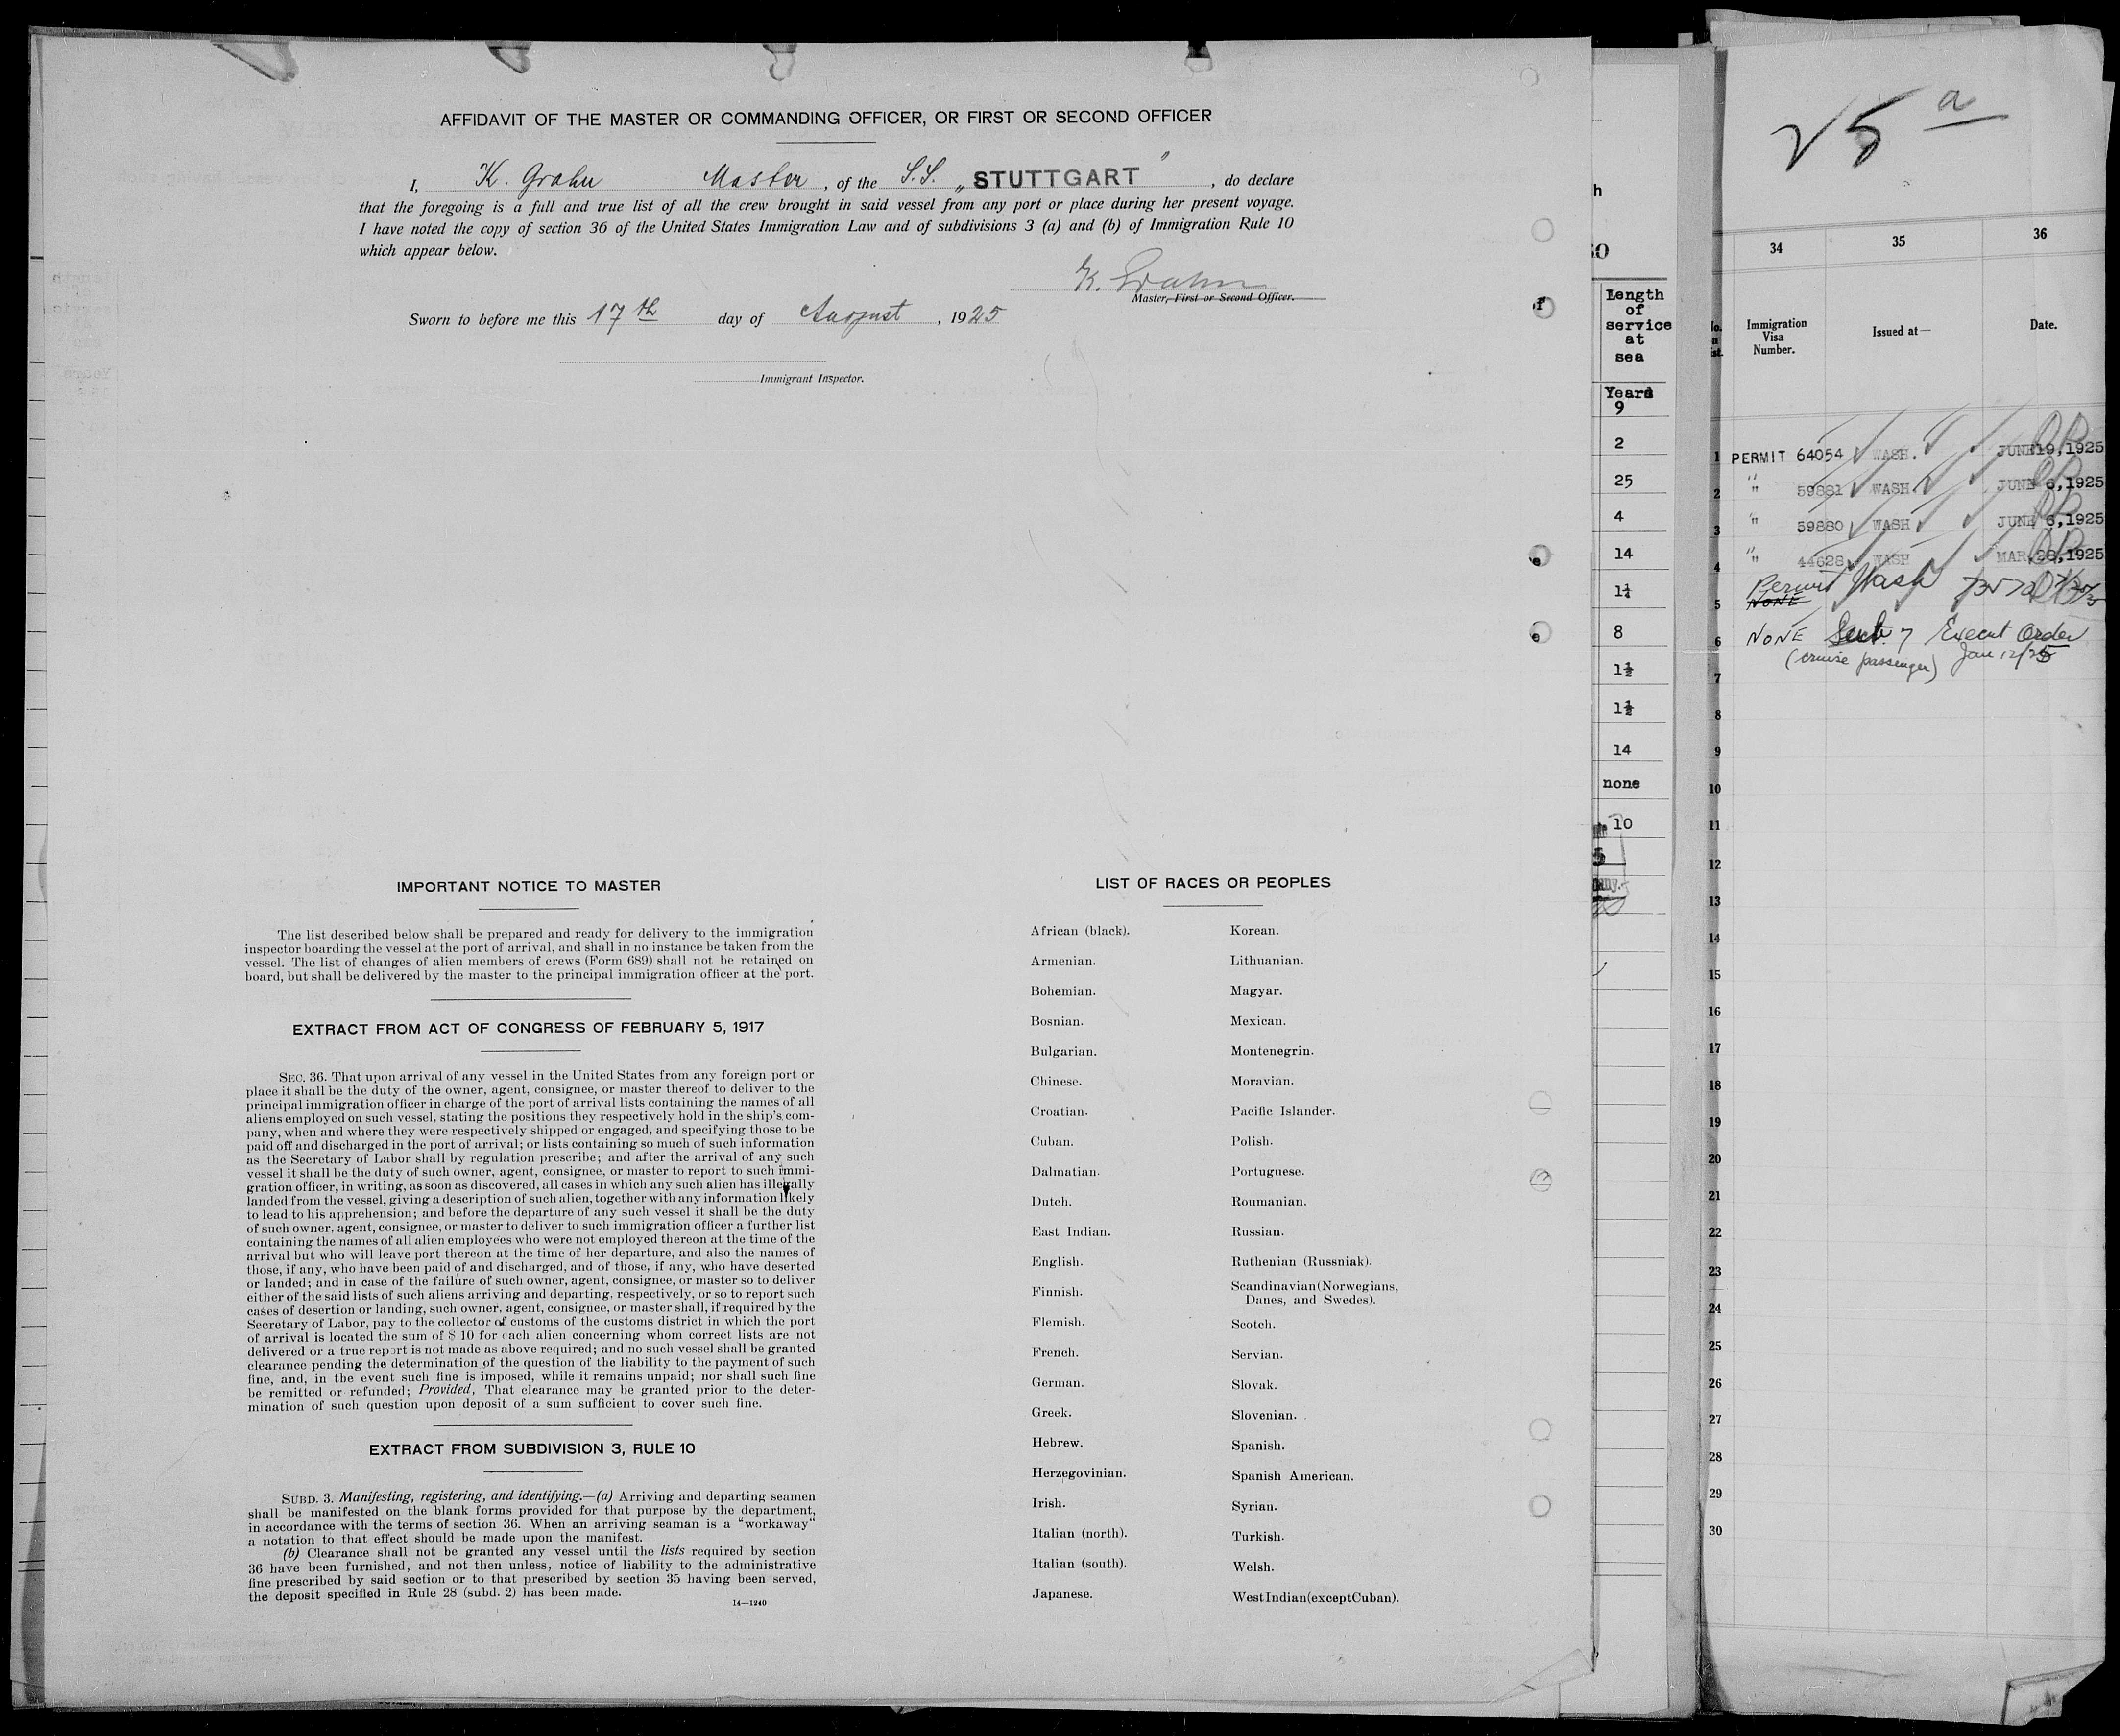 AFFIDAVIT OF THE MASTER OR COMMANDING OFFICER, OR FIRST OR SECOND OFFICER
I, K. Grahn Master, of the S.S. „STUTTGART", do declare
that the foregoing is a full and true list of all the crew brought in said vessel from any port or place during her present voyage.
I have noted the copy of section 36 of the United States Immigration Law and of subdivisions 3 (a) and (b) of Immigration Rule 10
which appear below.
K. Grahn
Master, First or Second Officer.
Sworn to before me this 17th day of August, 1925
Immigrant Inspector.
IMPORTANT NOTICE TO MASTER
The list described below shall be prepared and ready for delivery to the immigration
inspector boarding the vessel at the port of arrival, and shall in no instance be taken from the
vessel. The list of changes of alien members of crews (Form 689) shall not be retained on
board, but shall be delivered by the master to the principal immigration officer at the port.
EXTRACT FROM ACT OF CONGRESS OF FEBRUARY 5, 1917
SEC. 36. That upon arrival of any vessel in the United States from any foreign port or
place it shall be the duty of the owner, agent, consignee, or master thereof to deliver to the
principal immigration officer in charge of the port of arrival lists containing the names of all
aliens employed on such vessel, stating the positions they respectively hold in the ship's com-
pany, when and where they were respectively shipped or engaged, and specifying those to be
paid off and discharged in the port of arrival; or lists containing so much of such information
as the Secretary of Labor shall by regulation prescribe; and after the arrival of any such
vessel it shall be the duty of such owner, agent, consignee, or master to report to such immi-
gration officer, in writing, as soon as discovered, all cases in which any such alien has illegally
landed from the vessel, giving a description of such alien, together with any information likely
to lead to his apprehension; and before the departure of any such vessel it shall be the duty
of such owner, agent, consignee, or master to deliver to such immigration officer a further list
containing the names of all alien employees who were not employed thereon at the time of the
arrival but who will leave port thereon at the time of her departure, and also the names of
those, if any, who have been paid of and discharged, and of those, if any, who have deserted
or landed; and in case of the failure of such owner, agent, consignee, or master so to deliver
either of the said lists of such aliens arriving and departing, respectively, or so to report such
cases of desertion or landing, such owner, agent, consignee, or master shall, if required by the
Secretary of Labor, pay to the collector of customs of the customs district in which the port
of arrival is located the sum of $ 10 for each alien concerning whom correct lists are not
delivered or a true report is not made as above required; and no such vessel shall be granted
clearance pending the determination of the question of the liability to the payment of such
fine, and, in the event such fine is imposed, while it remains unpaid; nor shall such fine
be remitted or refunded; Provided, That clearance may be granted prior to the deter-
mination of such question upon deposit of a sum sufficient to cover such fine.
EXTRACT FROM SUBDIVISION 3, RULE 10
SUBD. 3. Manifesting, registering, and identifying.—(a) Arriving and departing seamen
shall be manifested on the blank forms provided for that purpose by the department,
in accordance with the terms of section 36. When an arriving seaman is a "workaway"
a notation to that effect should be made upon the manifest.
(b) Clearance shall not be granted any vessel until the lists required by section
36 have been furnished, and not then unless, notice of liability to the administrative
fine prescribed by said section or to that prescribed by section 35 having been served,
the deposit specified in Rule 28 (subd. 2) has been made.
14—1240
LIST OF RACES OR PEOPLES
African (black).
Armenian.
Bohemian.
Bosnian.
Bulgarian.
Chinese.
Croatian.
Cuban.
Dalmatian.
Dutch.
East Indian.
English.
Finnish.
Flemish.
French.
German.
Greek.
Hebrew.
Herzegovinian.
Irish.
Italian (north).
Italian (south).
Japanese.
Korean.
Lithuanian.
Magyar.
Mexican.
Montenegrin.
Moravian.
Pacific Islander.
Polish.
Portuguese.
Roumanian.
Russian.
Ruthenian (Russniak).
Scandinavian (Norwegians,
Danes, and Swedes).
Scotch.
Servian.
Slovak.
Slovenian.
Spanish.
Spanish American.
Syrian.
Turkish.
Welsh.
West Indian (except Cuban).
Length
of
service
at
sea
Years
9
2
25
4
14
1¼
8
1½
1½
14
none
10
25 a
34
35
36
Immigration
Visa
Number.
Issued at—
Date.
1 PERMIT 64054 WASH. JUNE 19, 1925
2 " 59881 WASH. JUNE 6, 1925
3 " 59880 WASH JUNE 6, 1925
4 " 44628 WASH MAR. 28, 1925
Permit Wash
5 NONE
6 NONE Sect. 7 Execut Order
(cruise passenger) Jan 12/25
7
8
9
10
11
12
13
14
15
16
17
18
19
20
21
22
23
24
25
26
27
28
29
30